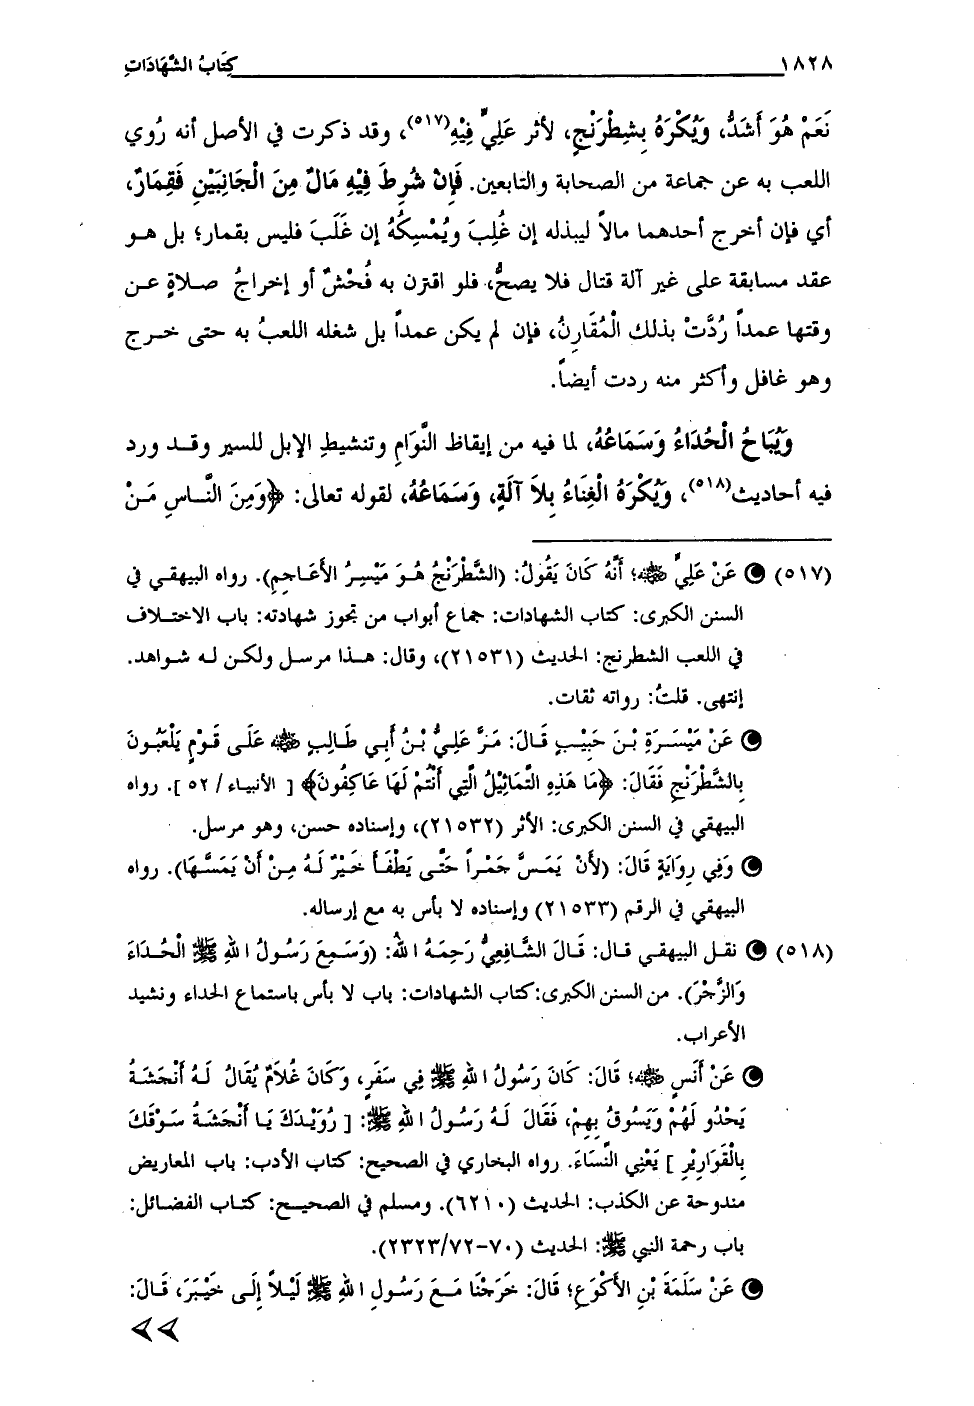 ١٨٢٨ كِتَابُ الشَّهَادَاتِ
نَعَمْ هُوَ أَشَدُّ، وَيُكْرَهُ بِشِطْرَنْجٍ، لأثر عَلِيٍّ فِيْهِ(٥١٧)، وقد ذكرت في الأصل أنه رُوي
اللعب به عن جماعة من الصحابة والتابعين. فَإِنْ شُرِطَ فِيْهِ مَالٌ مِنَ الْجَانِبَيْنِ فَقِمَارٌ،
أي فإن أخرج أحدهما مالاً ليبذله إن غُلِبَ ويُمْسِكُهُ إن غَلَبَ فليس بقمار؛ بل هو
عقد مسابقة على غير آلة قتال فلا يصحُّ، فلو اقترن به فُحْشٌ أو إخراجُ صلاةٍ عن
وقتها عمداً رُدَّتْ بذلك الْمُقَارِنُ، فإن لم يكن عمداً بل شغله اللعبُ به حتى خرج
وهو غافل وأكثر منه ردت أيضاً.
وَيُبَاحُ الْحُدَاءُ وَسَمَاعُهُ، لما فيه من إيقاظ النُّوَامِ وتنشيطِ الإبل للسير وقد ورد
فيه أحاديث(٥١٨)، وَيُكْرَهُ الْغِنَاءُ بِلاَ آلَةٍ، وَسَمَاعُهُ، لقوله تعالى: ﴿وَمِنَ النَّاسِ مَنْ
(٥١٧) عَنْ عَلِيٍّ ﷺ؛ أَنَّهُ كَانَ يَقُولُ: (الشَّطْرَنْجُ هُوَ مَيْسِرُ الأَعَاجِمِ). رواه البيهقي في
السنن الكبرى: كتاب الشهادات: جماع أبواب من تجوز شهادته: باب الاختلاف
في اللعب الشطرنج: الحديث (٢١٥٣١)، وقال: هذا مرسل ولكن له شواهد.
إنتهى. قلتُ: رواته ثقات.
عَنْ مَيْسَرَةِ بْنِ حَبِيْبٍ قَالَ: مَرَّ عَلِيُّ بْنُ أَبِي طَالِبٍ ﷺ عَلَى قَوْمٍ يَلْعَبُونَ
بِالشَّطْرَنْجِ فَقَالَ: ﴿مَا هَذِهِ التَّمَاثِيْلُ الَّتِي أَنْتُمْ لَهَا عَاكِفُونَ﴾ [ الأنبياء / ٥٢ ]. رواه
البيهقي في السنن الكبرى: الأثر (٢١٥٣٢)، وإسناده حسن، وهو مرسل.
وَفِي رِوَايَةٍ قَالَ: (لأَنْ يَمَسَّ جَمْراً حَتَّى يَطْفَأَ خَيْرٌ لَهُ مِنْ أَنْ يَمَسَّهَا). رواه
البيهقي في الرقم (٢١٥٣٣) وإسناده لا بأس به مع إرساله.
(٥١٨) نقل البيهقي قال: قَالَ الشَّافِعِيُّ رَحِمَهُ اللهُ: (وَسَمِعَ رَسُولُ اللهِ ﷺ الْحُدَاءَ
وَالرَّجْزَ). من السنن الكبرى:كتاب الشهادات: باب لا بأس باستماع الحداء ونشيد
الأعراب.
عَنْ أَنَسٍ ﷺ؛ قَالَ: كَانَ رَسُولُ اللهِ ﷺ فِي سَفَرٍ، وَكَانَ غُلاَمٌ يُقَالُ لَهُ أَنْجَشَةُ
يَحْدُو لَهُمْ وَيَسُوقُ بِهِمْ، فَقَالَ لَهُ رَسُولُ اللهِ ﷺ: [ رُوَيْدَكَ يَا أَنْجَشَةُ سَوْقَكَ
بِالْقَوَارِيْرِ ] يَعْنِي النِّسَاءَ. رواه البخاري في الصحيح: كتاب الأدب: باب المعاريض
مندوحة عن الكذب: الحديث (٦٢١٠). ومسلم في الصحيح: كتاب الفضائل:
باب رحمة النبي ﷺ: الحديث (٧٠-٢٣٢٣/٧٢).
عَنْ سَلَمَةَ بْنِ الأَكْوَعِ؛ قَالَ: خَرَجْنَا مَعَ رَسُولِ اللهِ ﷺ لَيْلاً إِلَى خَيْبَرَ، قَالَ: